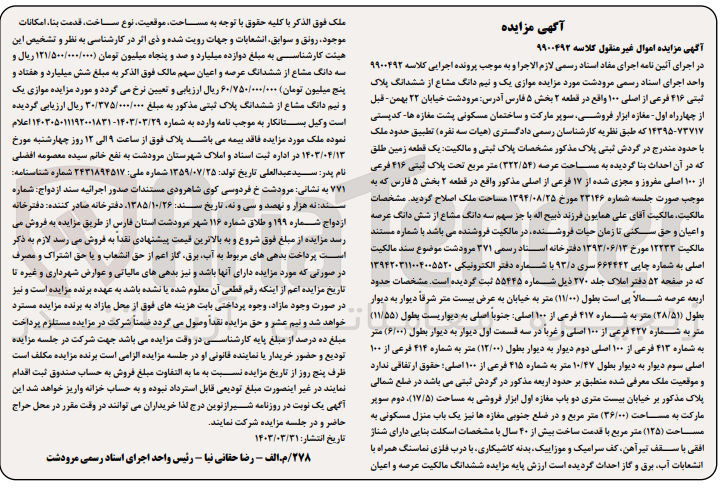 آگهی مزایده
آگهی مزایده اموال غیر منقول کلاسه ۹۹۰۰۴۹۲
در اجرای آئین نامه اجرای مفاد اسناد رسمی لازم الاجرا و به موجب پرونده اجرایی کلاسه ۹۹۰۰۴۹۲
واحد اجرای اسناد رسمی مرودشت مورد مزایده موازی یک و نیم دانگ مشاع از ششدانگ پلاک
ثبتی ۴۱۶ فرعی از اصلی ۱۰۰ واقع در قطعه ۲ بخش ۵ فارس آدرس: مرودشت خیابان ۲۲ بهمن- قبل
از چهارراه اول- مغازه ابزار فروشی، سوپر مارکت و ساختمان مسکونی پشت مغازه ها- کدپستی
۱۴۳۹۵-۷۳۷۱۷ که طبق نظریه کارشناسان رسمی دادگستری (هیات سه نفره) تطبیق حدود ملک
با حدود مندرج در گردش ثبتی پلاک مذکور مشخصات پلاک ثبتی و مالکیت: یک قطعه زمین طلق
که در آن احداث بنا گردیده به مساحت عرصه (۳۲۲/۵۴) متر مربع تحت پلاک ثبتی ۴۱۶ فرعی
از ۱۰۰ اصلی مفروز و مجزی شده از ۱۷ فرعی از اصلی مذکور واقع در قطعه ۲ بخش ۵ فارس که به
موجب صورت جلسه شماره ۲۳۱۴۶ مورخ ۱۳۹۴/۰۸/۲۵ مساحت ملک اصلاح گردید. مشخصات
مالکیت، مالکیت آقای علی همایون فرزند ذبیح اله با جز سهم سه دانگ مشاع از شش دانگ عرصه
و اعیان و حق سکنی تا زمان حیات فروشنده، در مالکیت فروشنده می باشد با شماره مستند
مالکیت ۱۲۲۳۳ مورخ ۱۳۹۳/۰۶/۱۳ دفترخانه اسناد رسمی ۳۷۱ مرودشت موضوع سند مالکیت
اصلی به شماره چاپی ۶۶۴۴۴۲ سری د/۹۳ با شماره دفتر الکترونیکی ۱۳۹۴۲۰۳۱۱۰۰۴۰۰۵۵۲۰
که در صفحه ۵۲ دفتر املاک جلد ۲۷۰ ذیل شماره ۵۵۴۴۵ ثبت گردیده است. مشخصات حدود
اربعه عرصه شمالاً پی است بطول (۱۱/۰۰) متر به خیابان به عرض بیست متر شرقاً دیوار به دیوار
بطول (۲۸/۵۱) متر به شماره ۴۱۷ فرعی از ۱۰۰ اصلی: جنوباً اصلی به دیواریست بطول (۱۱/۵۵)
متر به شماره ۴۲۷ فرعی از ۱۰۰ اصلی و غرباً در سه قسمت اول دیوار به دیوار بطول (۶/۰۰) متر
به شماره ۴۱۳ فرعی از ۱۰۰ اصلی دوم دیوار به دیوار بطول (۱۲/۰۰) متر به شماره ۴۱۴ فرعی از ۱۰۰
اصلی سوم دیوار به دیوار بطول ۱۰/۴۷ متر به شماره ۴۱۵ فرعی از ۱۰۰ اصلی؛ حقوق ارتفاقی ندارد
و موقعیت ملک معرفی شده منطبق بر حدود اربعه مذکور در گردش ثبتی می باشد در ضلع شمالی
پلاک مذکور بر خیابان بیست متری دو باب مغازه اول ابزار فروشی به مساحت (۱۷/۵)، دوم سوپر
مارکت به مساحت (۳۶/۰۰) متر مربع و در ضلع جنوبی مغازه ها نیز یک باب منزل مسکونی به
مساحت (۱۲۵) متر مربع با قدمت ساخت بیش از ۴۰ سال با مشخصات اسکلت بنایی دارای شناژ
افقی با سقف تیرآهن، کف سرامیک و موزاییک، بدنه کاشیکاری، با درب فلزی نماسنگ همراه با
انشعابات آب، برق و گاز احداث گردیده است ارزش پایه مزایده ششدانگ مالکیت عرصه و اعیان
ملک فوق الذکر با کلیه حقوق با توجه به مساحت، موقعیت، نوع ساخت، قدمت بنا، امکانات
موجود، رونق و سوابق، انشعابات و جهات رویت شده و ذی اثر در کارشناسی به نظر و تشخیص این
هیئت کارشناسی به مبلغ دوازده میلیارد و صد و پنجاه میلیون تومان (۱۲۱/۵۰۰/۰۰۰/۰۰۰) ریال و
سه دانگ مشاع از ششدانگ عرصه و اعیان سهم مالک فوق الذکر به مبلغ شش میلیارد و هفتاد و
پنج میلیون تومان) ۶۰/۷۵۰/۰۰۰/۰۰۰ ریال ارزیابی و تعیین نرخ می گردد و مورد مزایده موازی یک
و نیم دانگ مشاع از ششدانگ پلاک ثبتی مذکور به مبلغ ۳۰/۳۷۵/۰۰۰/۰۰۰ ریال ارزیابی گردیده
است وکیل بستانکار به موجب نامه وارده به شماره ۱۴۰۳/۰۳/۲۹-۱۴۰۳۰۵۰۱۱۱۹۲۰۰۱۸۳۱ اعلام
نموده ملک مورد مزایده فاقد بیمه می باشد پلاک فوق از ساعت ۹ الی ۱۲ روز چهارشنبه مورخ
۱۴۰۳/۰۴/۱۳ در اداره ثبت اسناد و املاک شهرستان مرودشت به نفع خانم سیده معصومه افضلی
نام پدر: سیدعبدالعلی تاریخ تولد: ۱۳۵۹/۰۷/۲۵ شماره ملی: ۲۴۳۱۸۹۴۵۱۷ شماره شناسنامه:
۷۷۱ به نشانی: مرودشت خ فردوسی کوی شاهرودی مستندات صدور اجرائیه سند ازدواج: شماره
سند: نه هزار و نهصد و سی و نه، تاریخ سند: ۱۳۸۵/۱۰/۲۶، دفترخانه صادر کننده: دفترخانه
ازدواج شماره ۱۹۹ و طلاق شماره ۱۱۶ شهر مرودشت استان فارس از طریق مزایده به فروش می
رسد مزایده از مبلغ فوق شروع و به بالاترین قیمت پیشنهادی نقداً به فروش می رسد لازم به ذکر
است پرداخت بدهی های مربوط به آب، برق، گاز اعم از حق انشعاب و یا حق اشتراک و مصرف
در صورتی که مورد مزایده دارای آنها باشد و نیز بدهی های مالیاتی و عوارض شهرداری و غیره تا
تاریخ مزایده اعم از اینکه رقم قطعی آن معلوم شده یا نشده باشد به عهده برنده مزایده است و نیز
در صورت وجود مازاد، وجوه پرداختی بابت هزینه های فوق از محل مازاد به برنده مزایده مسترد
خواهد شد و نیم عشر و حق مزایده نقداً وصول می گردد ضمناً شرکت در مزایده مستلزم پرداخت
مبلغ ده درصد از مبلغ پایه کارشناسی در وقت مزایده می باشد جهت شرکت در جلسه مزایده
تودیع و حضور خریدار یا نماینده قانونی او در جلسه مزایده الزامی است برنده مزایده مکلف است
ظرف پنج روز از تاریخ مزایده نسبت به ما به التفاوت مبلغ فروش به حساب صندوق ثبت اقدام
نمایند در غیر اینصورت مبلغ تودیعی قابل استرداد نبوده و به حساب خزانه واریز خواهد شد این
آگهی یک نوبت در روزنامه شیرازنوین درج لذا خریداران می توانند در وقت مقرر در محل حراج
حاضر و در جلسه مزایده شرکت نمایند.
تاریخ انتشار: ۱۴۰۳/۰۳/۳۱
۲۷۸/م.الف - رضا حقانی نیا - رئیس واحد اجرای اسناد رسمی مرودشت